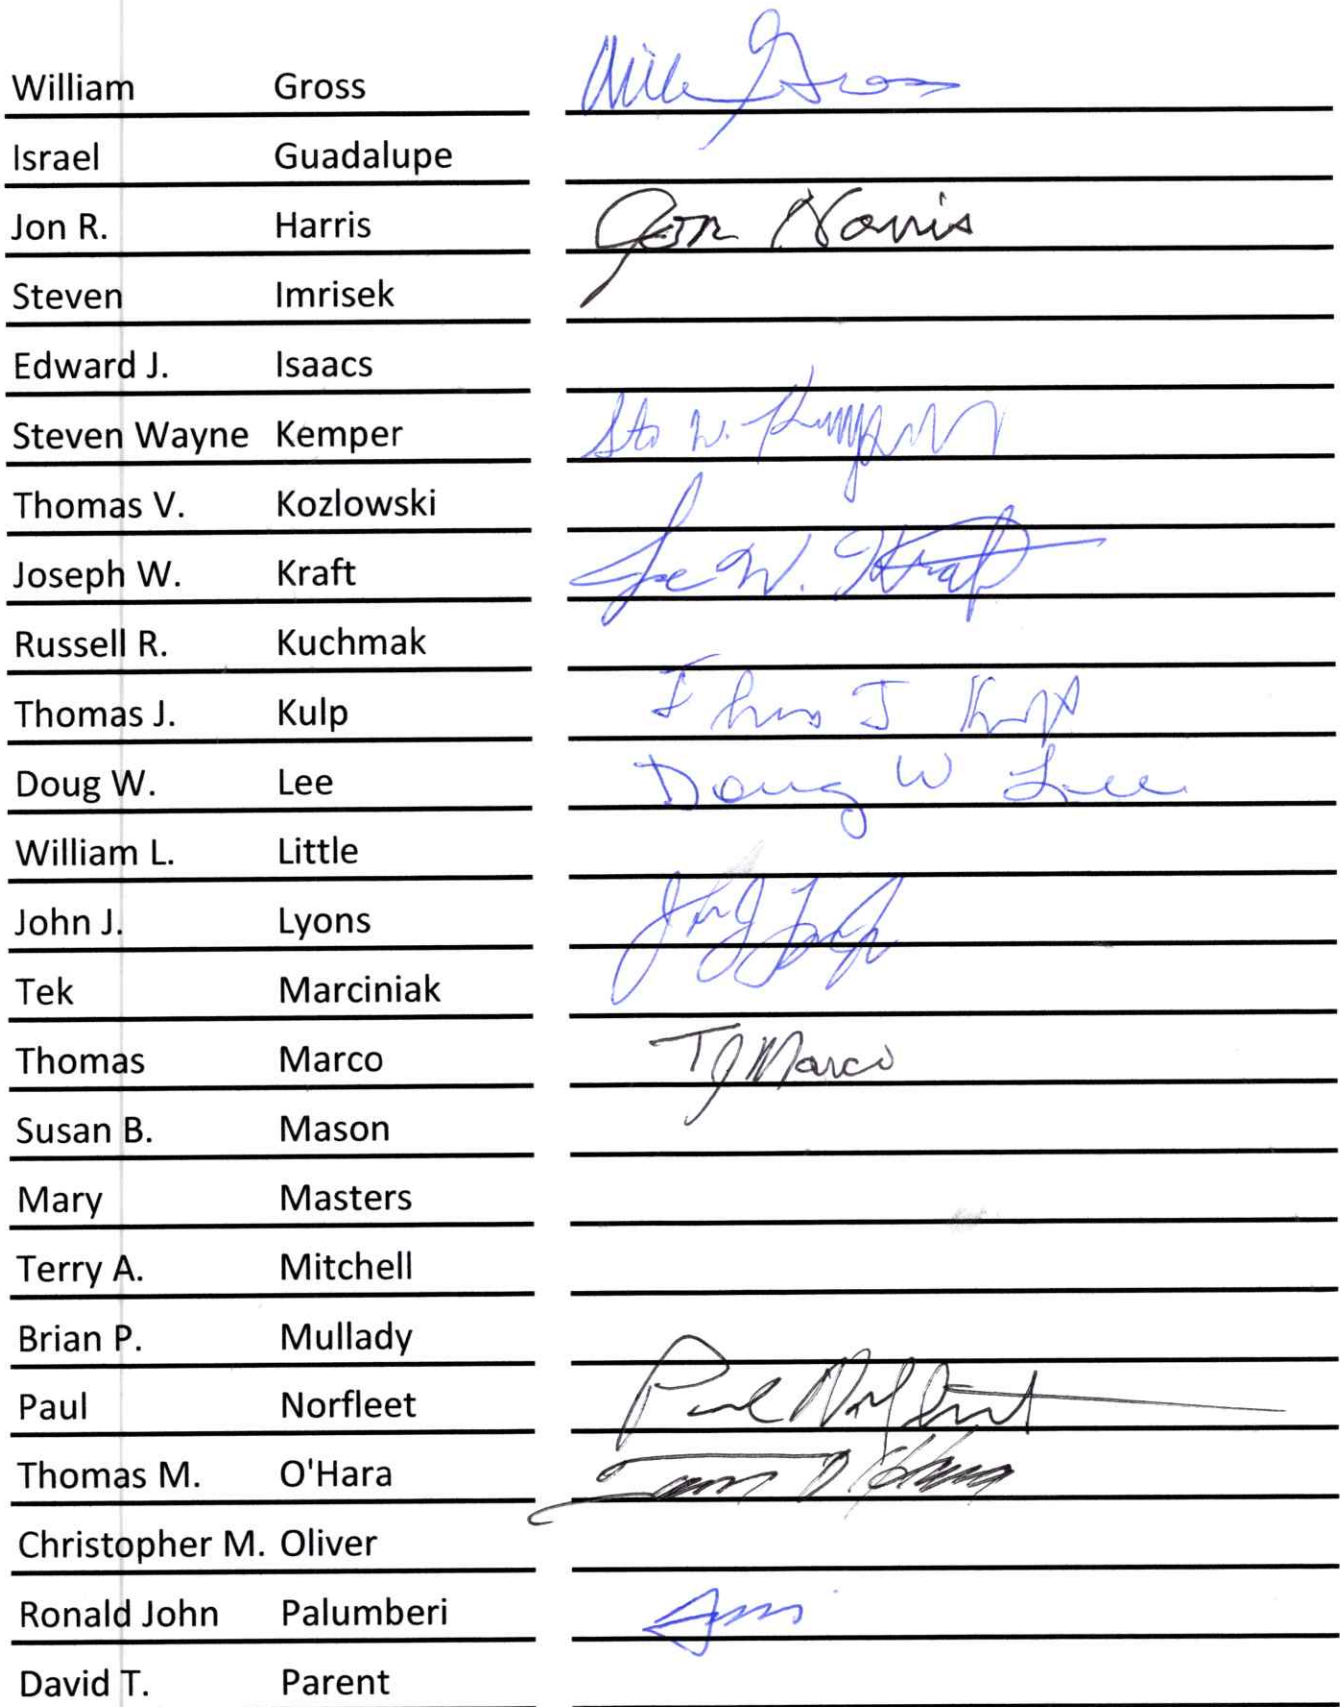 William Gross Will Gross
Israel Guadalupe
Jon R. Harris Jon Harris
Steven Imrisek
Edward J. Isaacs
Steven Wayne Kemper W.
Thomas V. Kozlowski
Joseph W. Kraft Joe W. Kraft
Russell R. Kuchmak
Thomas J. Kulp J
Doug W. Lee Doug W Lee
William L. Little
John J. Lyons
Tek Marciniak
Thomas Marco TJ Marco
Susan B. Mason
Mary Masters
Terry A. Mitchell
Brian P. Mullady
Paul Norfleet Paul Norfleet
Thomas M. O'Hara
Christopher M. Oliver
Ronald John Palumberi
David T. Parent